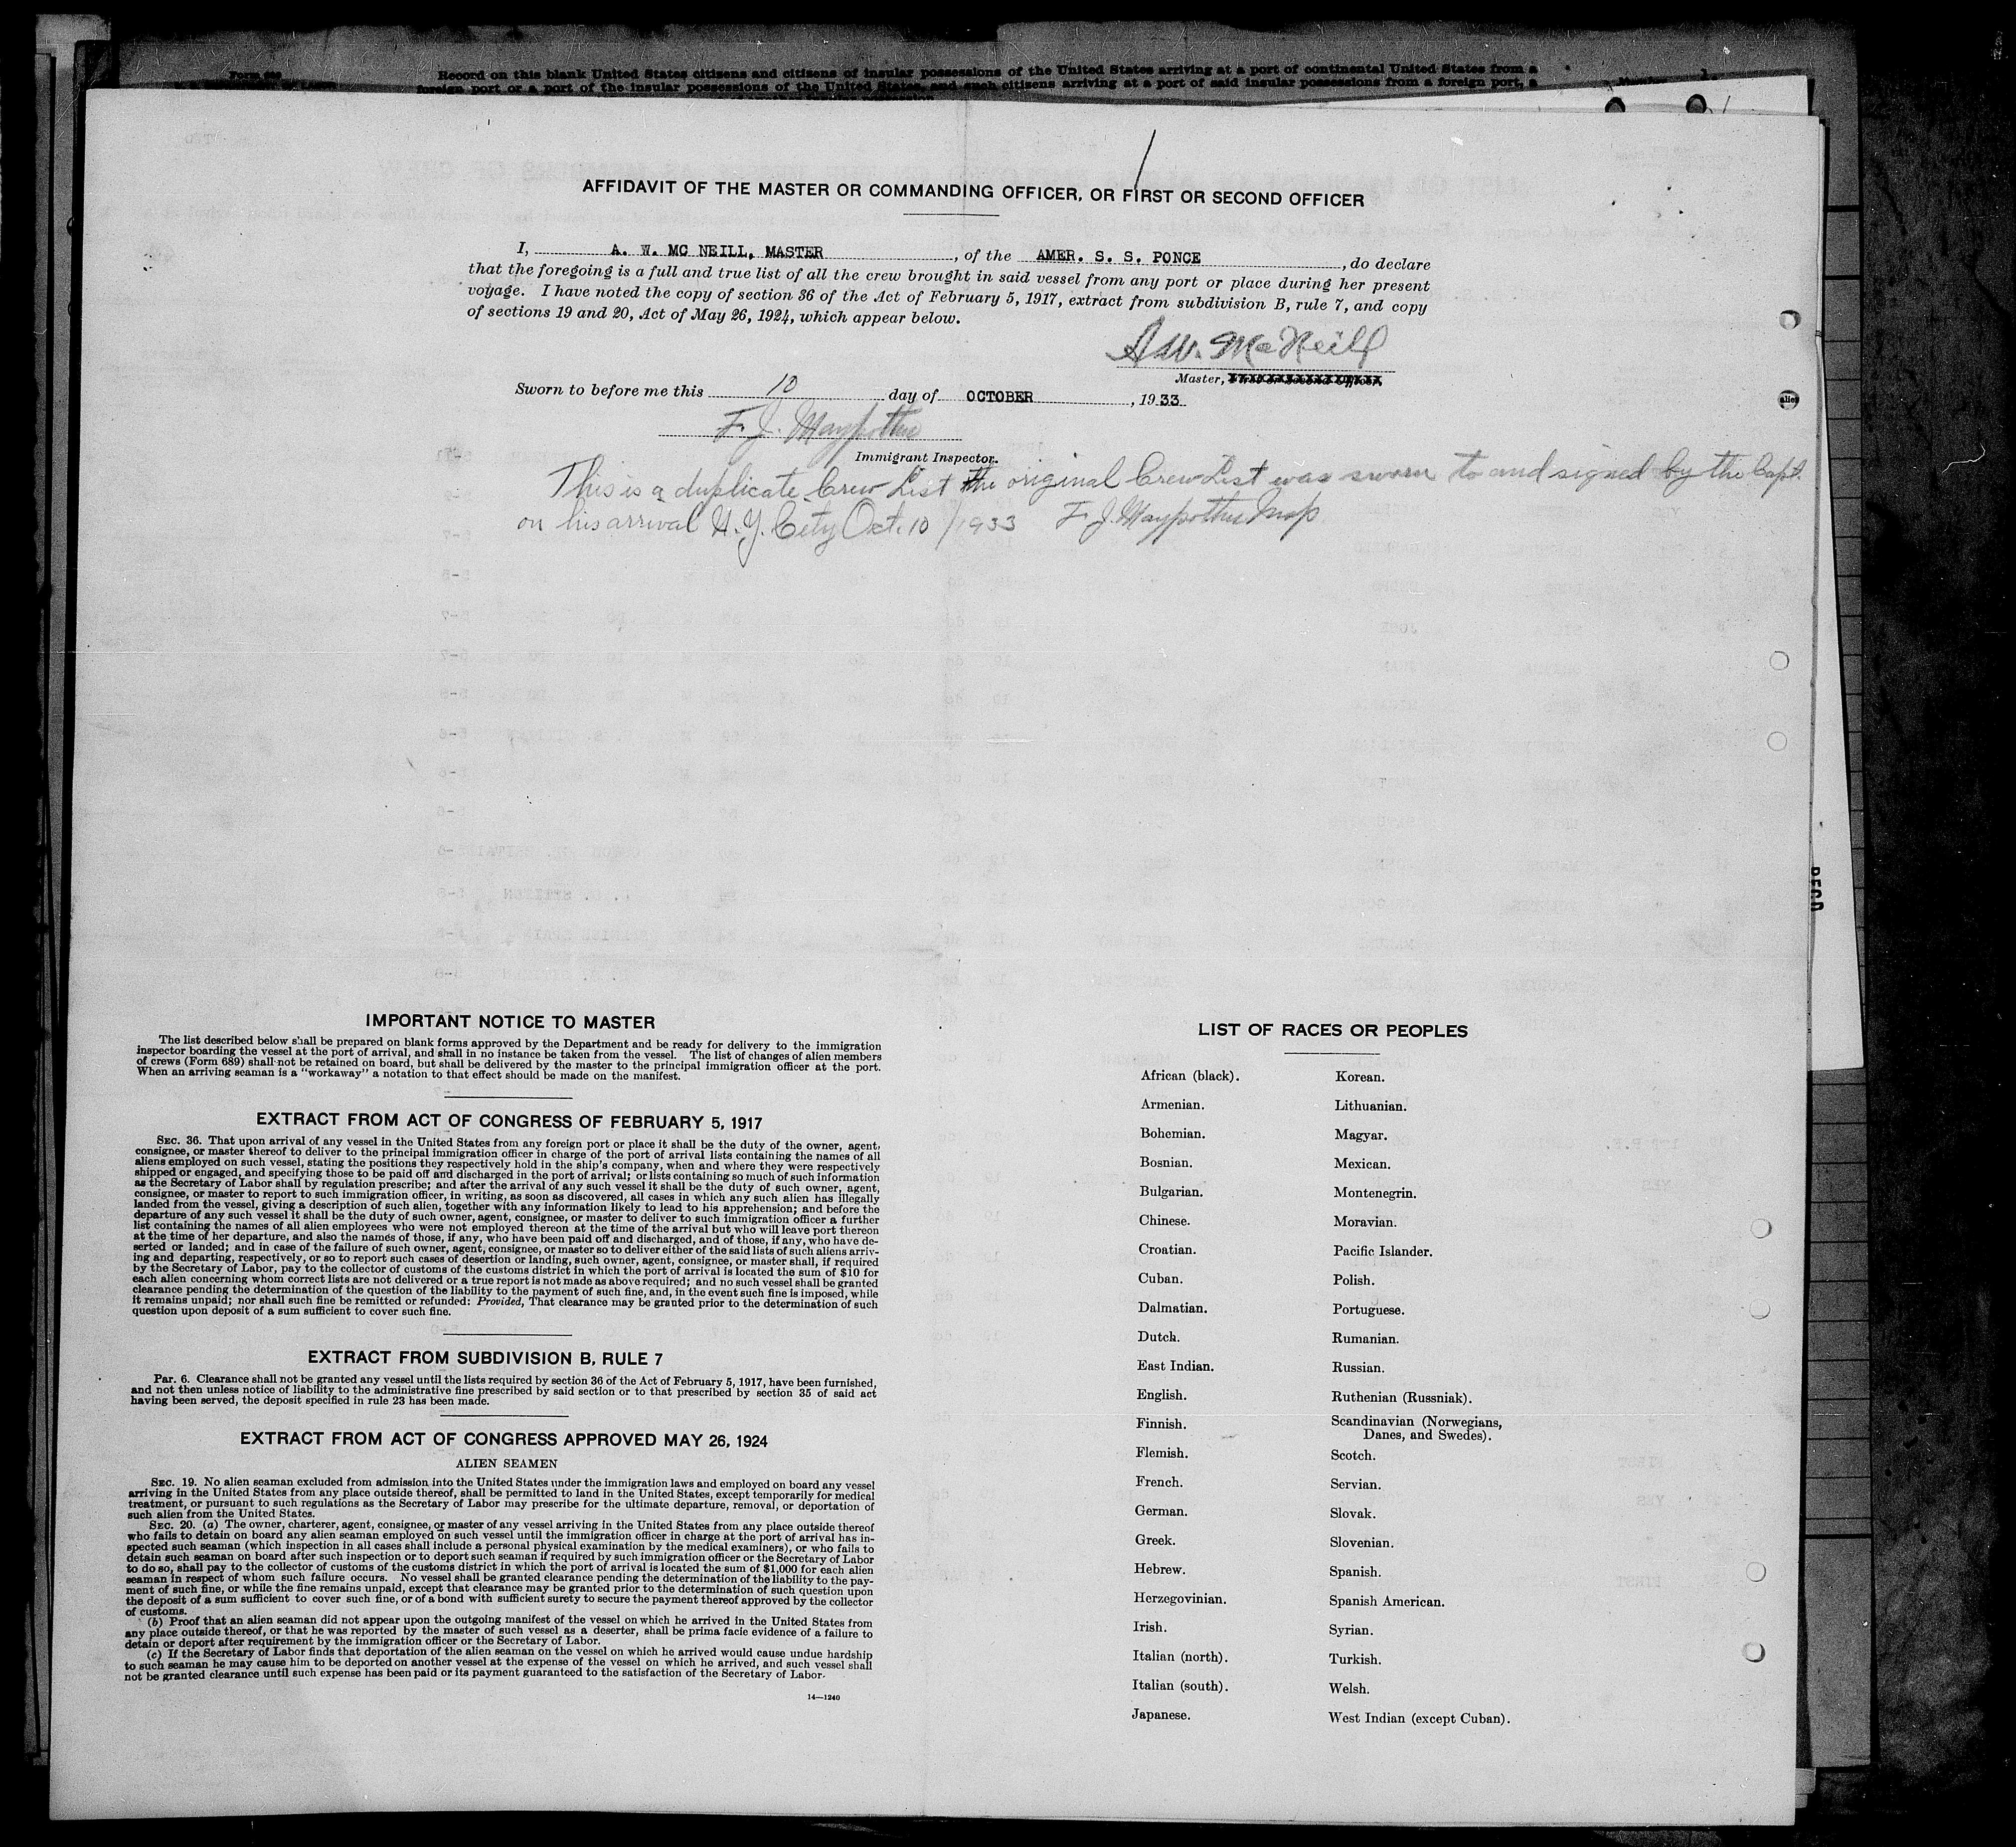 Record on this blank United States citizens and citizens of insular possessions of the United States arriving at a port of continental United States from a
foreign port or a port of the insular possessions of the United States, and such citizens arriving at a port of said insular possessions from a foreign port, a
AFFIDAVIT OF THE MASTER OR COMMANDING OFFICER, OR FIRST OR SECOND OFFICER
I, A. W. MC NEILL, MASTER, of the AMER. S. S. PONCE, do declare
that the foregoing is a full and true list of all the crew brought in said vessel from any port or place during her present
voyage. I have noted the copy of section 36 of the Act of February 5, 1917, extract from subdivision B, rule 7, and copy
of sections 19 and 20, Act of May 26, 1924, which appear below.
A W. McNeill
Master,
Sworn to before me this 10 day of OCTOBER, 1933
F. J.
Immigrant Inspector.
This is a duplicate Crew List the original Crew List was sworn to and signed by the Capt.
on his arrival N.Y. City Oct. 10/1933 F. J.
alien
RECD
IMPORTANT NOTICE TO MASTER
The list described below shall be prepared on blank forms approved by the Department and be ready for delivery to the immigration
inspector boarding the vessel at the port of arrival, and shall in no instance be taken from the vessel. The list of changes of alien members
of crews (Form 689) shall not be retained on board, but shall be delivered by the master to the principal immigration officer at the port.
When an arriving seaman is a "workaway" a notation to that effect should be made on the manifest.
EXTRACT FROM ACT OF CONGRESS OF FEBRUARY 5, 1917
SEC. 36. That upon arrival of any vessel in the United States from any foreign port or place it shall be the duty of the owner, agent,
consignee, or master thereof to deliver to the principal immigration officer in charge of the port of arrival lists containing the names of all
aliens employed on such vessel, stating the positions they respectively hold in the ship's company, when and where they were respectively
shipped or engaged, and specifying those to be paid off and discharged in the port of arrival; or lists containing so much of such information
as the Secretary of Labor shall by regulation prescribe; and after the arrival of any such vessel it shall be the duty of such owner, agent,
consignee, or master to report to such immigration officer, in writing, as soon as discovered, all cases in which any such alien has illegally
landed from the vessel, giving a description of such alien, together with any information likely to lead to his apprehension; and before the
departure of any such vessel it shall be the duty of such owner, agent, consignee, or master to deliver to such immigration officer a further
list containing the names of all alien employees who were not employed thereon at the time of the arrival but who will leave port thereon
at the time of her departure, and also the names of those, if any, who have been paid off and discharged, and of those, if any, who have de-
serted or landed; and in case of the failure of such owner, agent, consignee, or master so to deliver either of the said lists of such aliens arriv-
ing and departing, respectively, or so to report such cases of desertion or landing, such owner, agent, consignee, or master shall, if required
by the Secretary of Labor, pay to the collector of customs of the customs district in which the port of arrival is located the sum of $10 for
each alien concerning whom correct lists are not delivered or a true report is not made as above required; and no such vessel shall be granted
clearance pending the determination of the question of the liability to the payment of such fine, and, in the event such fine is imposed, while
it remains unpaid; nor shall such fine be remitted or refunded: Provided, That clearance may be granted prior to the determination of such
question upon deposit of a sum sufficient to cover such fine.
EXTRACT FROM SUBDIVISION B, RULE 7
PAR. 6. Clearance shall not be granted any vessel until the lists required by section 36 of the Act of February 5, 1917, have been furnished,
and not then unless notice of liability to the administrative fine prescribed by said section or to that prescribed by section 35 of said act
having been served, the deposit specified in rule 23 has been made.
EXTRACT FROM ACT OF CONGRESS APPROVED MAY 26, 1924
ALIEN SEAMEN
SEC. 19. No alien seaman excluded from admission into the United States under the immigration laws and employed on board any vessel
arriving in the United States from any place outside thereof, shall be permitted to land in the United States, except temporarily for medical
treatment, or pursuant to such regulations as the Secretary of Labor may prescribe for the ultimate departure, removal, or deportation of
such alien from the United States.
SEC. 20. (a) The owner, charterer, agent, consignee, or master of any vessel arriving in the United States from any place outside thereof
who fails to detain on board any alien seaman employed on such vessel until the immigration officer in charge at the port of arrival has in-
spected such seaman (which inspection in all cases shall include a personal physical examination by the medical examiners), or who fails to
detain such seaman on board after such inspection or to deport such seaman if required by such immigration officer or the Secretary of Labor
to do so, shall pay to the collector of customs of the customs district in which the port of arrival is located the sum of $1,000 for each alien
seaman in respect of whom such failure occurs. No vessel shall be granted clearance pending the determination of the liability to the pay-
ment of such fine, or while the fine remains unpaid, except that clearance may be granted prior to the determination of such question upon
the deposit of a sum sufficient to cover such fine, or of a bond with sufficient surety to secure the payment thereof approved by the collector
of customs.
(b) Proof that an alien seaman did not appear upon the outgoing manifest of the vessel on which he arrived in the United States from
any place outside thereof, or that he was reported by the master of such vessel as a deserter, shall be prima facie evidence of a failure to
detain or deport after requirement by the immigration officer or the Secretary of Labor.
(c) If the Secretary of Labor finds that deportation of the alien seaman on the vessel on which he arrived would cause undue hardship
to such seaman he may cause him to be deported on another vessel at the expense of the vessel on which he arrived, and such vessel shall
not be granted clearance until such expense has been paid or its payment guaranteed to the satisfaction of the Secretary of Labor.
14—1240
LIST OF RACES OR PEOPLES
African (black).
Armenian.
Bohemian.
Bosnian.
Bulgarian.
Chinese.
Croatian.
Cuban.
Dalmatian.
Dutch.
East Indian.
English.
Finnish.
Flemish.
French.
German.
Greek.
Hebrew.
Herzegovinian.
Irish.
Italian (north).
Italian (south).
Japanese.
Korean.
Lithuanian.
Magyar.
Mexican.
Montenegrin.
Moravian.
Pacific Islander.
Polish.
Portuguese.
Rumanian.
Russian.
Ruthenian (Russniak).
Scandinavian (Norwegians,
Danes, and Swedes).
Scotch.
Servian.
Slovak.
Slovenian.
Spanish.
Spanish American.
Syrian.
Turkish.
Welsh.
West Indian (except Cuban).